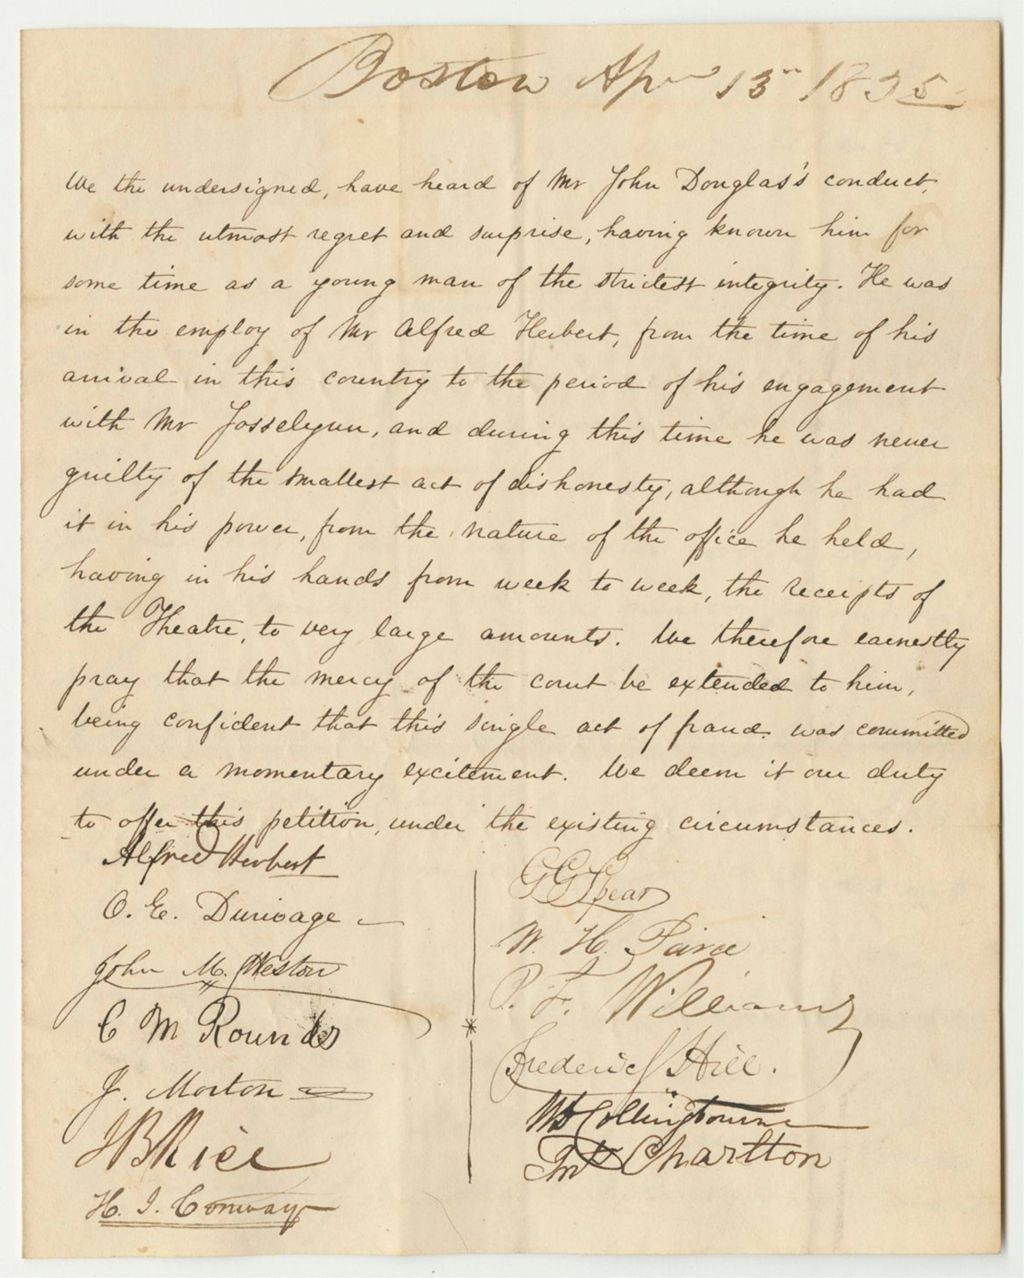 Boston Apr 13th 1835
We the undersigned, have heard of Mr John Douglass's conduct,
with the utmost regret and surprise, having known him for
some time as a young man of the strictest integrity. He was
in the employ of Mr Alfred Herbert, from the time of his
arrival in this country to the period of his engagement
with Mr Josselynn, and during this time he was never
guilty of the smallest act of dishonesty, although he had
it in his power, from the nature of the office he held,
having in his hands from week to week, the receipts of
the Theatre, to very large amounts. We therefore earnestly
pray that the mercy of the court be extended to him,
being confident that this single act of fraud was committed
under a momentary excitement. We deem it our duty
to offer this petition, under the existing circumstances.
Alfred Herbert
O. E. Durivage
John M. Weston
C M Rounds
J. Morton
J B Rice
H. J. Conway
G G Spear
W. H.
P. F. Williams
Frederick S Hill.
Wm Collingbourne
Charlton